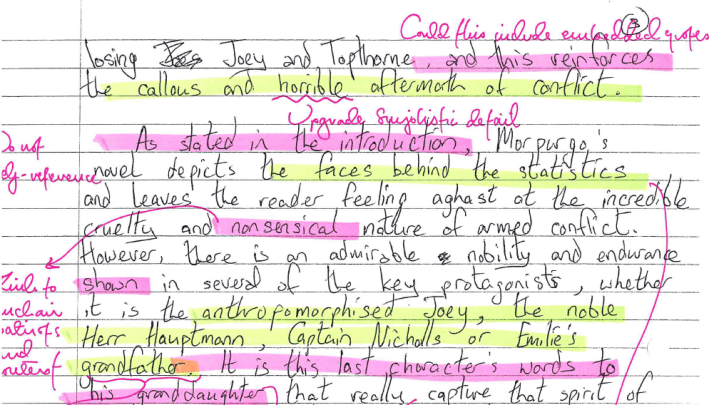 Could this include embedded quotes
losing Joey and Topthorne, and this reinforces
the callous and horrible aftermath of conflict.
Upgrade simplistic detail
As stated in the introduction, Morpurgo's
Do not
self-reference
novel depicts the faces behind the statistics
and leaves the reader feeling aghast at the incredible
cruelty and nonsensical nature of armed conflict.
However, there is an admirable nobility and endurance
Link to
shown in several of the key protagonists, whether
it is the anthropomorphised Joey, the noble
Herr Hauptmann, Captain Nicholls or Emilie's
grandfather. It is this last character's words to
his granddaughter that really capture that spirit of